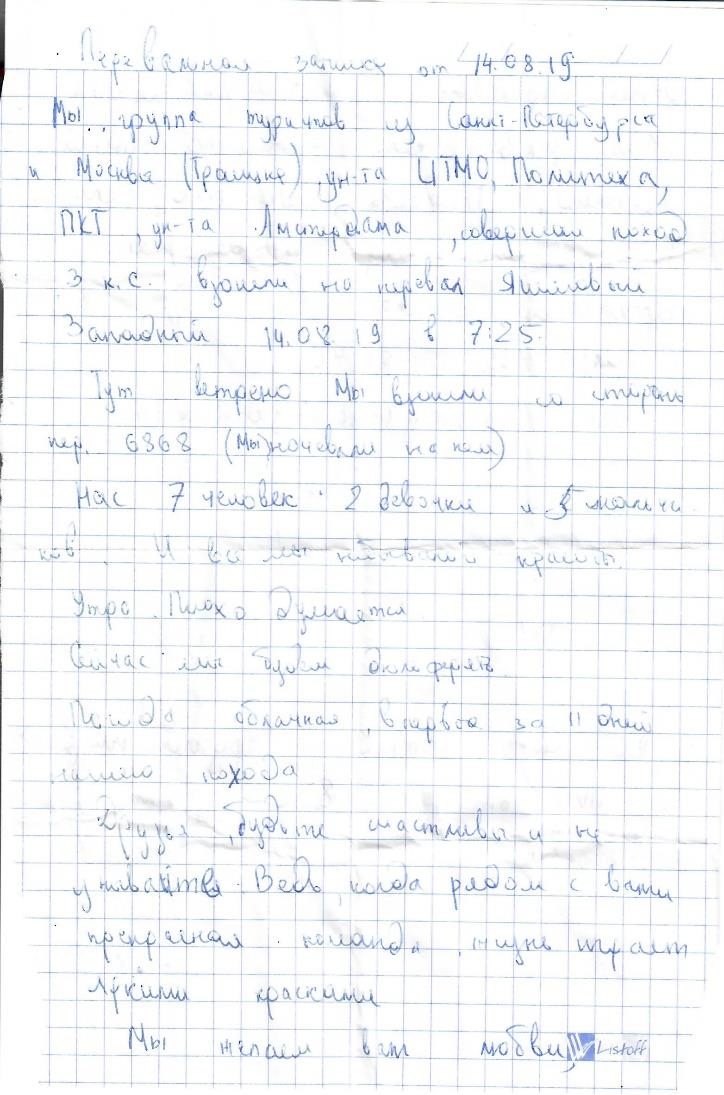 Перевальная записка от 14.08.19
Мы, группа туристов из Санкт-Петербурга
и Москвы (Троицка), ун-та ИТМО, Политеха,
ПКТ, ун-та Амстердама, совершили поход
3 к.с. взошли на перевал
Западный 14.08.19 в 7:25.
Тут ветрено Мы взошли со стороны
пер. 6868 (Мы ночевали на нем)
Нас 7 человек: 2 девочки и 5 мальчи
ков. И все мы небывалой красоты.
Утро. Плохо думается
Сейчас мы будем дюльферять.
Погода облачная, впервые за 11 дней
нашего похода
Друзья, будьте счастливы и не
унывайте. Ведь, когда рядом с вами
прекрасная команда, жизнь играет
яркими красками
Мы желаем вам любви,
Listoff